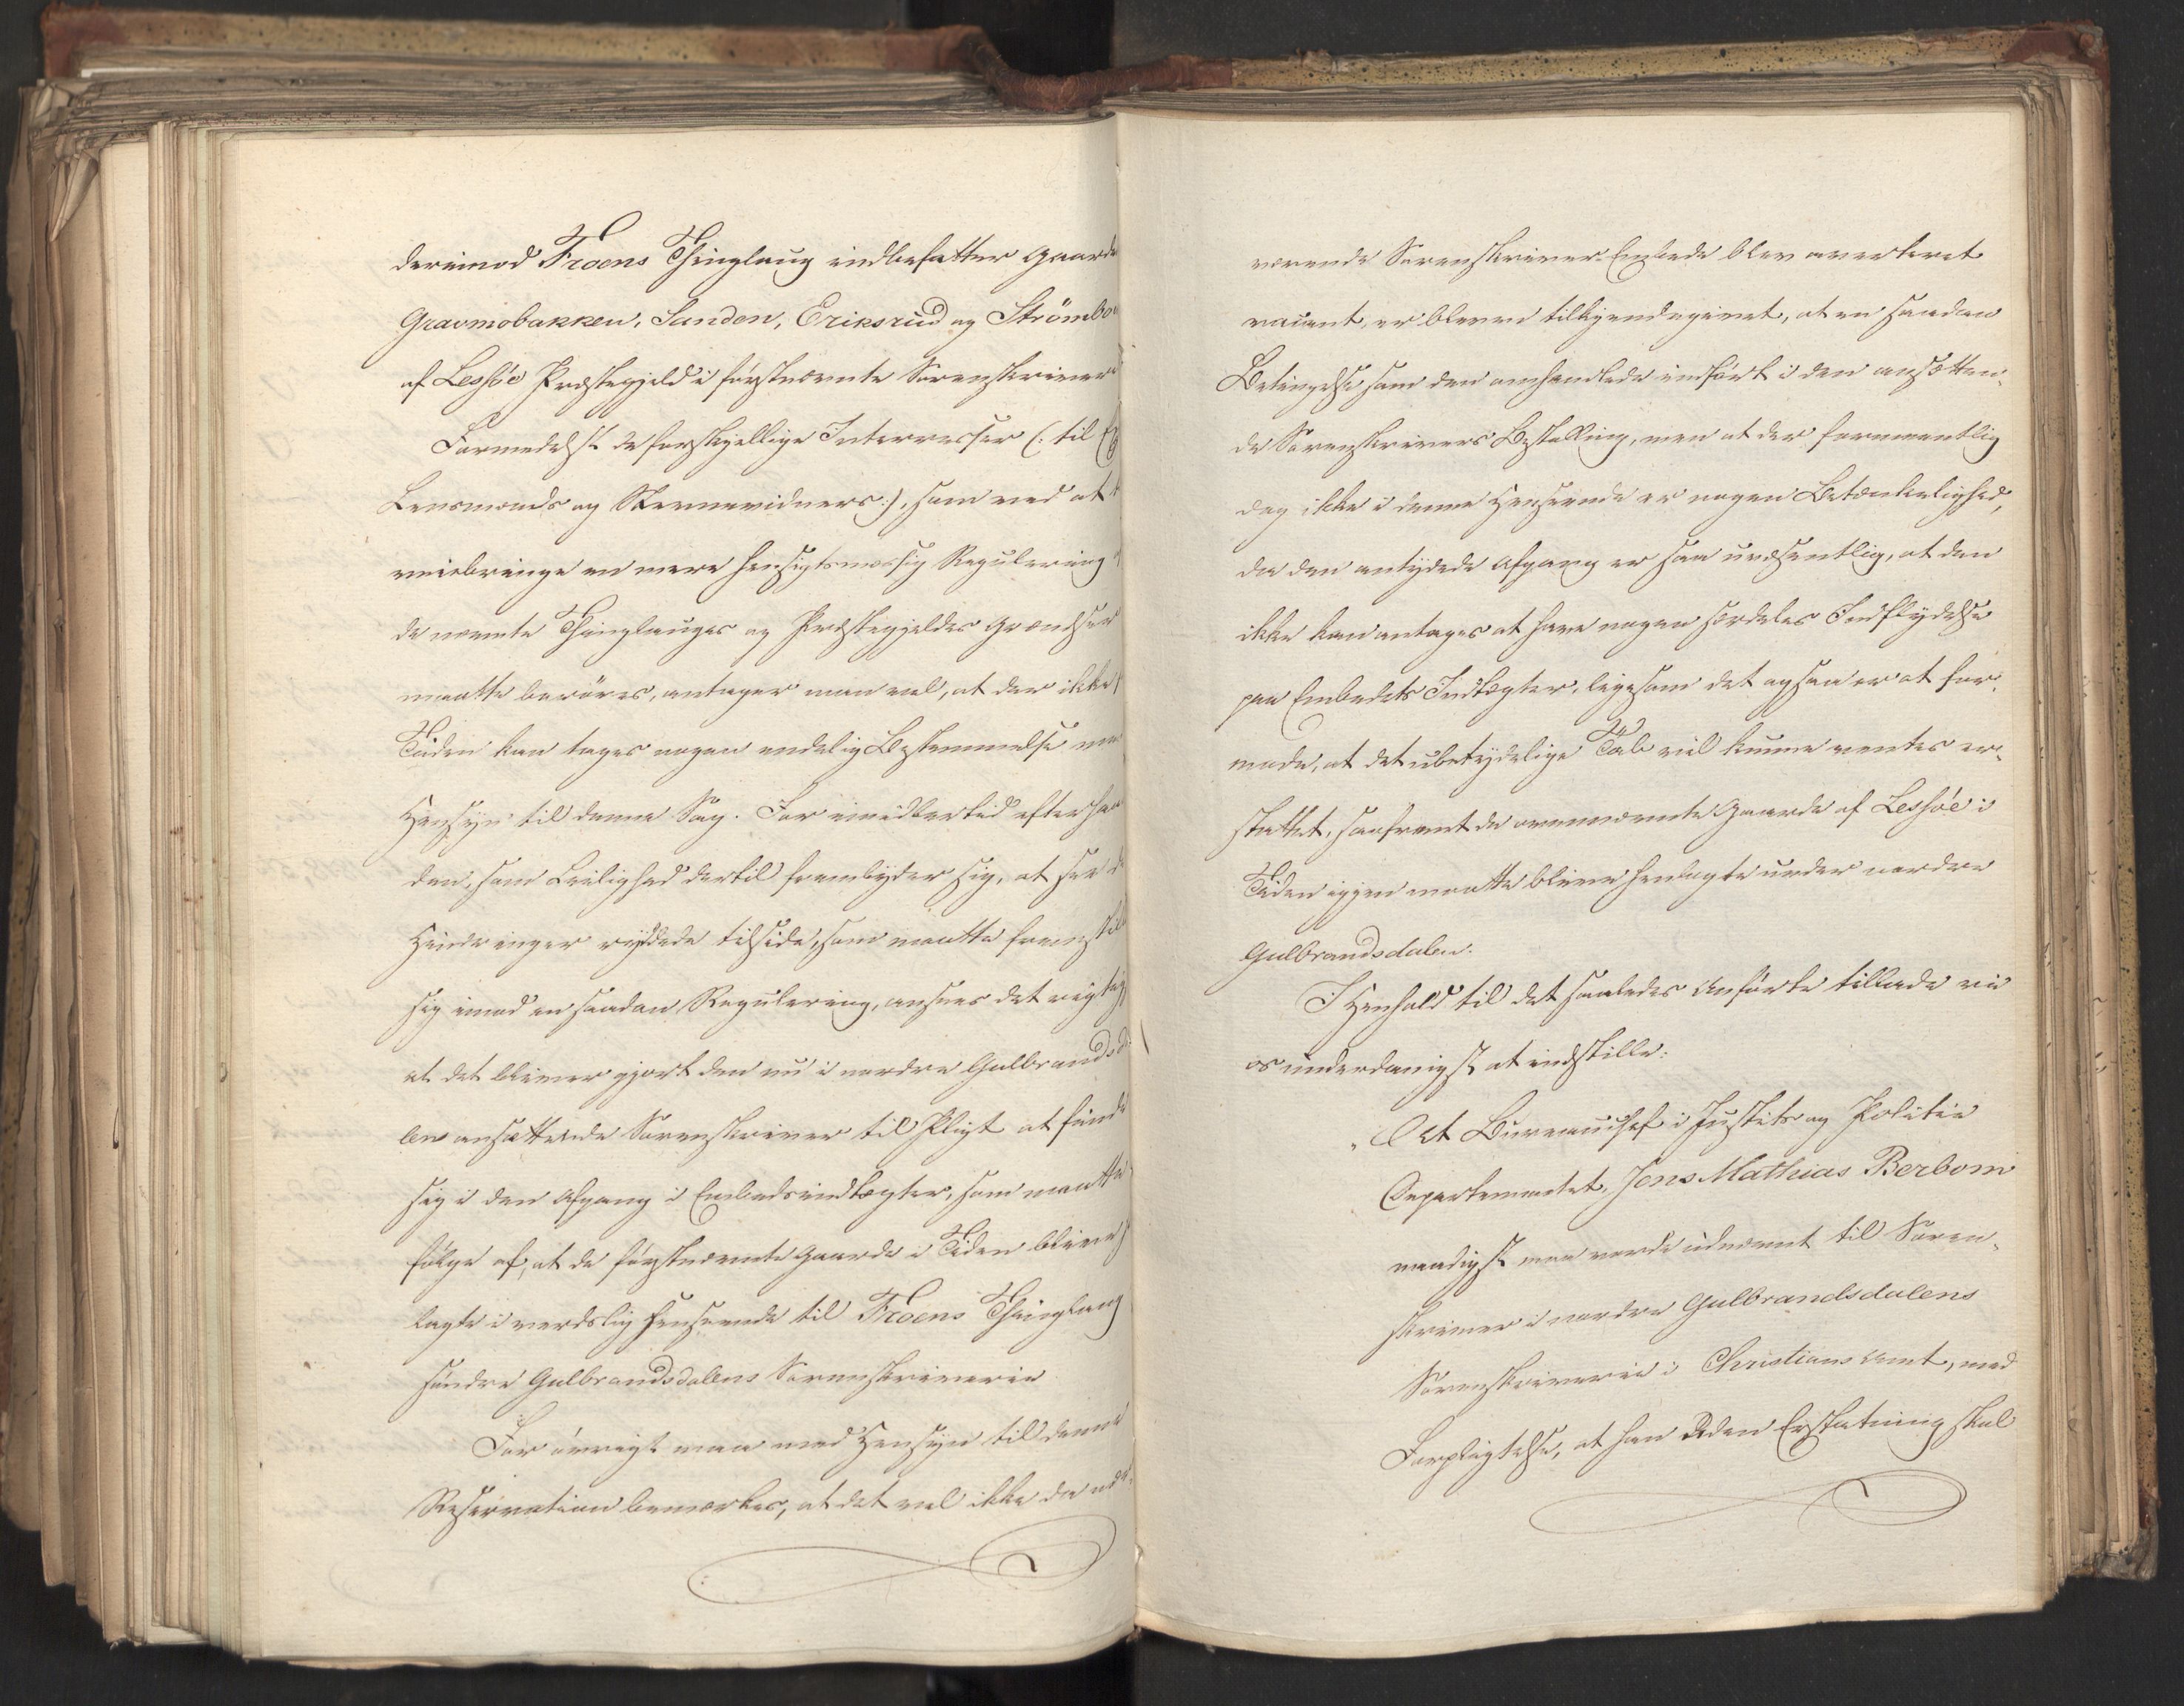 derimod Froens Thinglaug indbefatter Gaarde
Gravmobakken, Sunden, Eriksrud og Strömbo
af Lessöe Præstegjeld i förstnævnte Sorenskriveri
Formedelst de forskjellige Interresser (: til
Lensmænds og Stevnevidners :), som ved at
veiebringe en mere hensigtsmæssig Regulering
de nævnte Thinglauges og Præstegjeldes Grændser
maatte beröres, antager man vel, at der ikke
Tiden kan tages nogen endelig Bestemmelse med
Hensyn til denne Sag. For imidlertid efterhaan
den, som Leilighed dertil frembyder sig, at see de
Hindringer ryddede tilside, som maatte fremstille
sig imod en saadan Regulering, ansees det rigtigt
at det bliver gjort den nu i nordre Gulbrandsda
len ansættende Sorenskriver til Pligt at finde
sig i den Afgang i Embedsindtægter, som maatte
fölge af, at de förstnævnte Gaarde i Tiden blive
lagte i verdslig Henseende til Froens Thinglaug
söndre Gulbrandsdalens Sorenskriverie
For övrigt maa med Hensyn til denne
Reservation bemærkes, at det vel ikke da
værende Sorenskriver-Embede blev averteret
vacant, er bleven tilkjendegivet, at en saadan
Betingelse som den omhandlede indfört i den ansætten-
de Sorenskrivers Bestalling, men at der formeentlig
dog ikke i denne Henseende er nogen Betænkelighed,
da den antydede Afgang er saa uvæsentlig, at den
ikke kan antages at have nogen særdeles Indflydelse
paa Embedets Indtægter, ligesom det ogsaa er at for-
mode, at det ubetydelige Tab vil kunne ventes er-
stattet, saafremt de ovennævnte Gaarde af Lessöe i
Tiden igjen maatte blive henlagte under nordre
Gulbrandsdalen.
I Henhold til det saaledes Anförte tillade vi
os underdanigst at indstille:
"At Bureauchef i Justits og Politie
Departementet, Jens Mathias Berbom
naadigst maa vorde udnævnt til Soren-
skriver i nordre Gulbrandsdalens
Sorenskriverie i Christians Amt, med
Forpligtelse, at han uden Erstatning skal